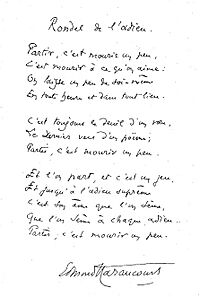 Rondel de l'adieu.
Partir, c'est mourir un peu,
C'est mourir à ce qu'on aime:
On laisse un peu de soi-même
En toute heure et dans tout lieu.
C'est toujours le deuil d'un vœu,
Le dernier vers d'un poème;
Partir, c'est mourir un peu.
Et l'on part, et c'est un jeu,
Et jusqu'à l'adieu suprême
C'est son âme que l'on sème,
Que l'on sème à chaque adieu.
Partir, c'est mourir un peu.
Edmond Haraucourt